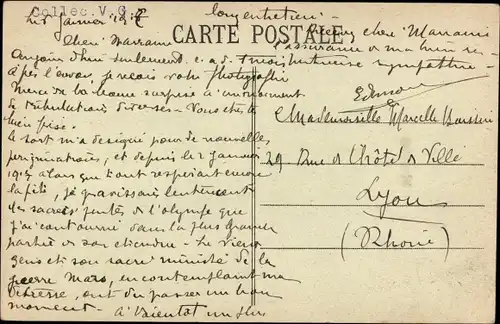 Collec. V. G.
CARTE POSTALE
janvier 1917
Chère Marraine
Aujourd'hui seulement c.a.d. 1 mois
après l'envoi, je reçois votre photographie
Merci de la bonne surprise
de tribulations diverses - Vous êtes
bien prise.
Le sort m'a désigné pour de nouvelles
pérégrinations, et depuis le 2 janvier
1917 alors que tout respirait encore
la fête, je gravissais lentement
les sacrées pentes de l'olympe que
j'ai contourné dans la plus grande
partie de son étendue - Le vieux
et son sacré ministre de la
guerre Mars, en contemplant ma
détresse, ont dû passer un bon
moment - A bientôt un plus
long entretien.
Recevez, chère Marraine
l'assurance de ma
sympathie -
Edmond
Mademoiselle Marcelle
29 Rue de l'hôtel de Ville
Lyon
(Rhône)